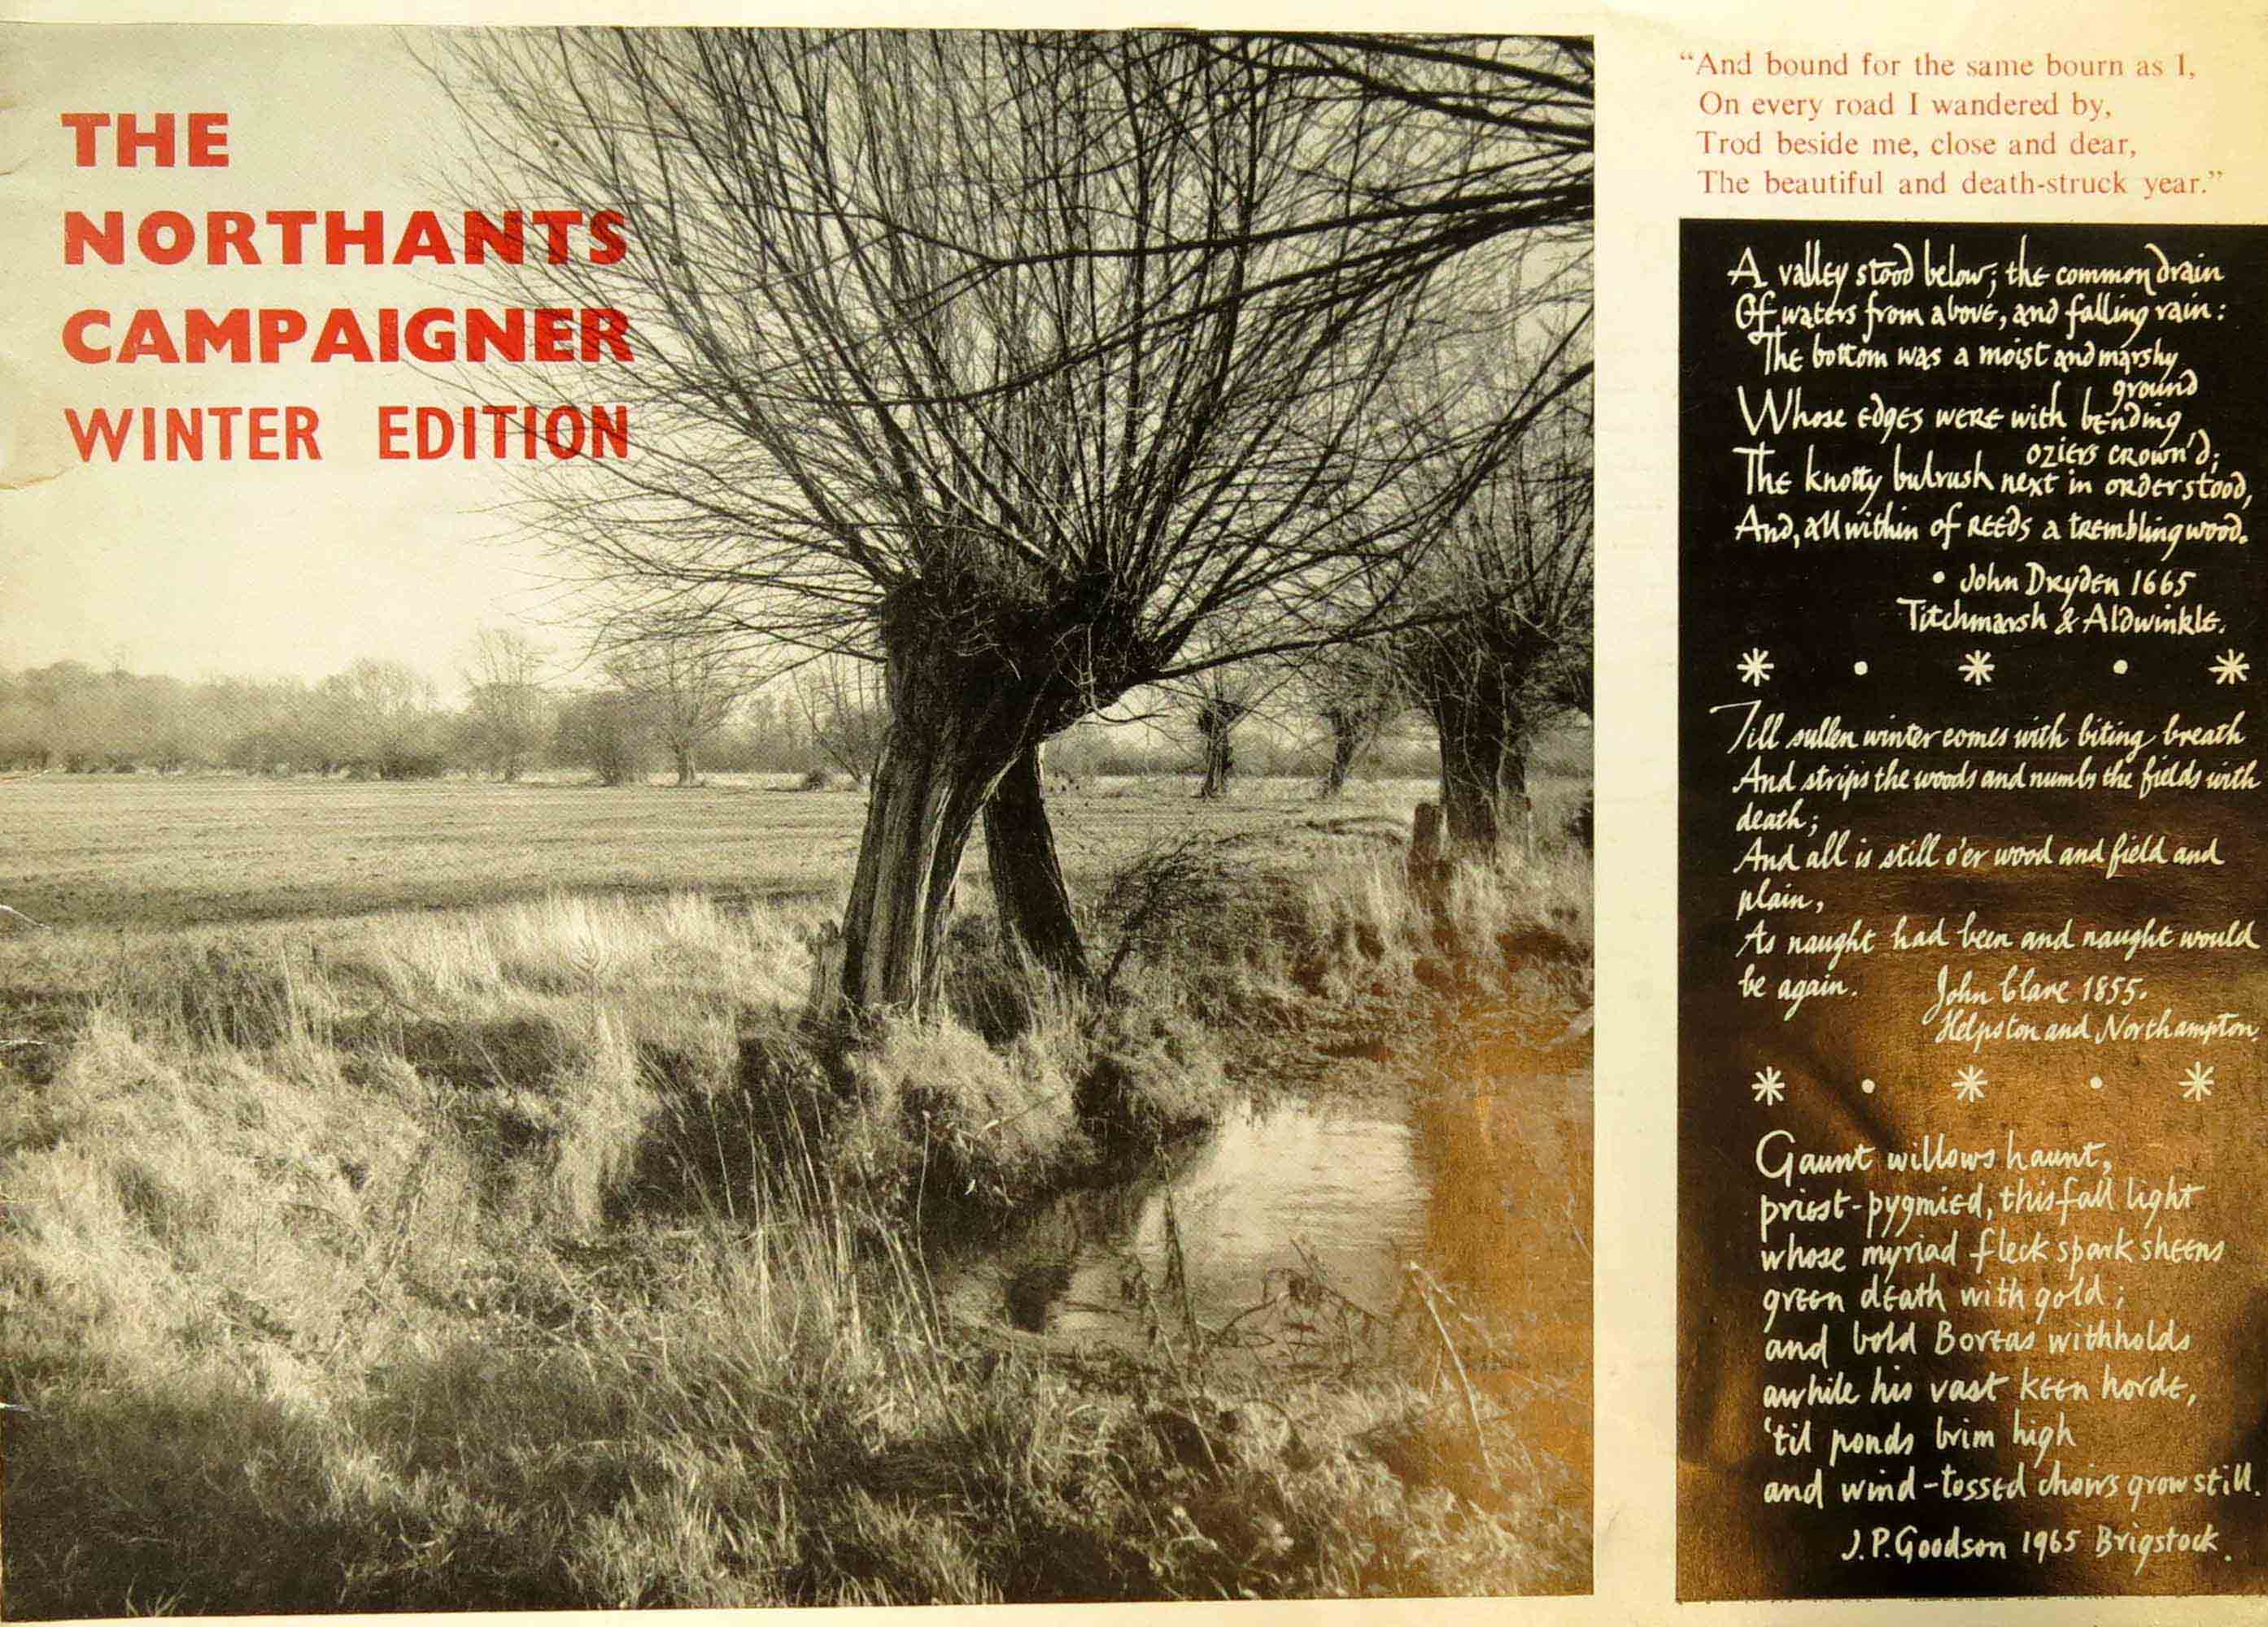 THE
NORTHANTS
CAMPAIGNER
WINTER EDITION
"And bound for the same bourn as I,
On every road I wandered by,
Trod beside me, close and dear,
The beautiful and death-struck year."
A valley stood below; the common drain
Of waters from above, and falling rain:
The bottom was a moist and marshy
ground
Whose edges were with bending
oziers crown'd;
The knotty bulrush next in order stood,
And, all within of reeds a trembling wood.
• John Dryden 1665
Titchmarsh & Aldwinkle.
* • * • *
Till sullen winter comes with biting breath
And strips the woods and numbs the fields with
death;
And all is still o'er wood and field and
plain,
As naught had been and naught would
be again. John Clare 1855.
Helpston and Northampton.
* • * • *
Gaunt willows haunt,
priest-pygmied, this fall light
whose myriad fleck spark sheens
green death with gold;
and bold Boreas withholds
awhile his vast keen horde,
'til ponds brim high
and wind-tossed choirs grow still.
J.P. Goodson 1965 Brigstock.